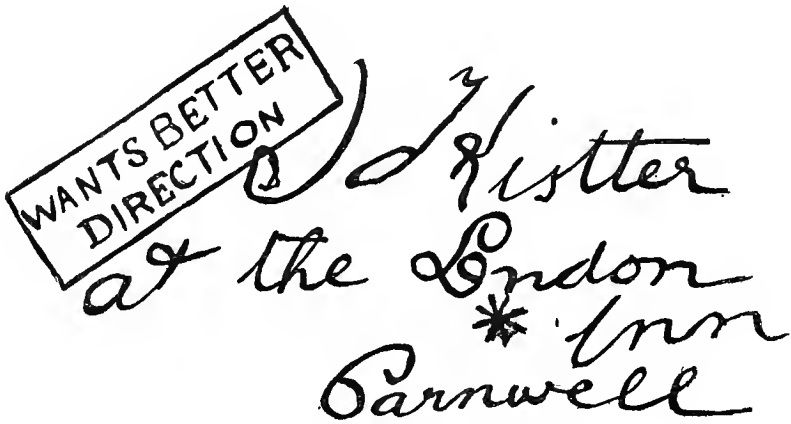 WANTS BETTER
DIRECTION
J Kistter
at the London
* Inn
Parnwell